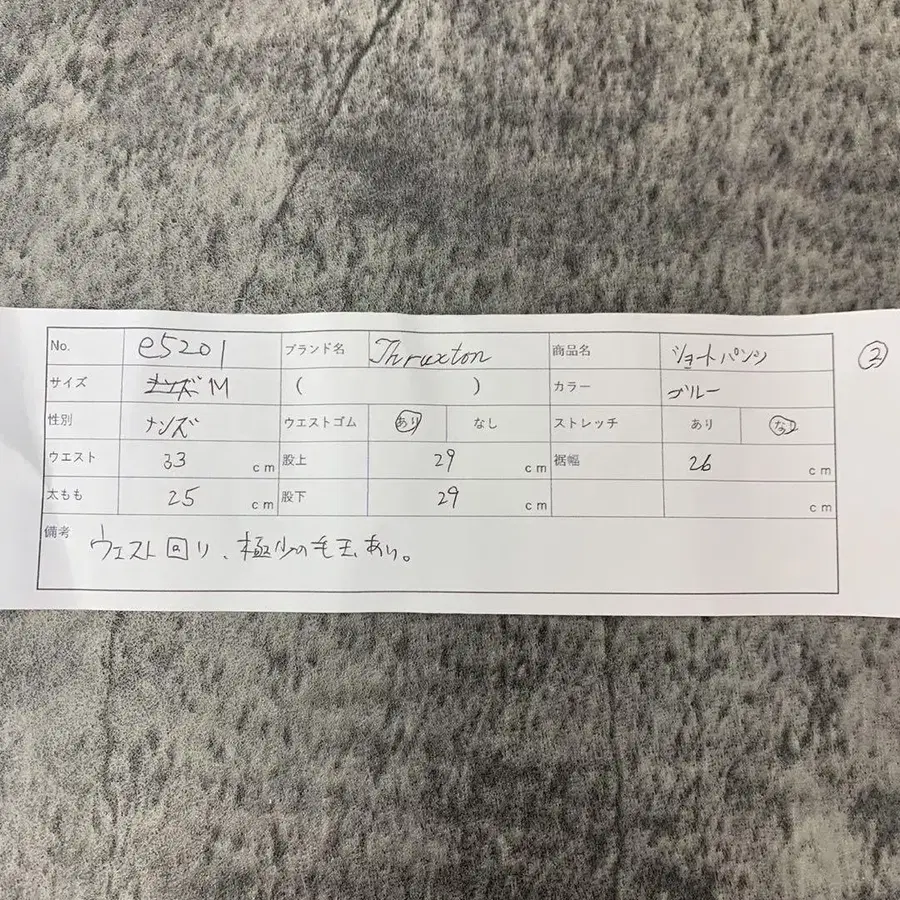 No. e5201 ブランド名 Thruxton 商品名 ショートパンツ ②
サイズ M ( ) カラー ブルー
性別 メンズ ウエストゴム あり なし ストレッチ あり なし
ウエスト 33 cm 股上 29 cm 裾幅 26 cm
太もも 25 cm 股下 29 cm cm
備考 ウエスト回り、極少の毛玉あり。